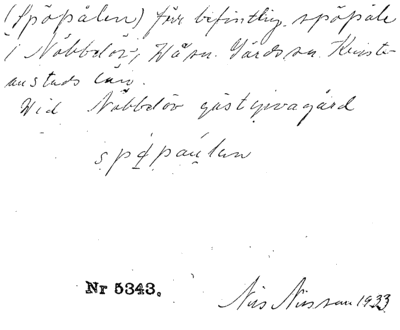 (Spöpålen) för befintlig spöpåle
i Nöbbelöv, Gärds Kristi-
anstads län.
Vid Nöbbelöv gästgivagård
spöpaulen
Nr 5343.
Nils Nilsson 1933